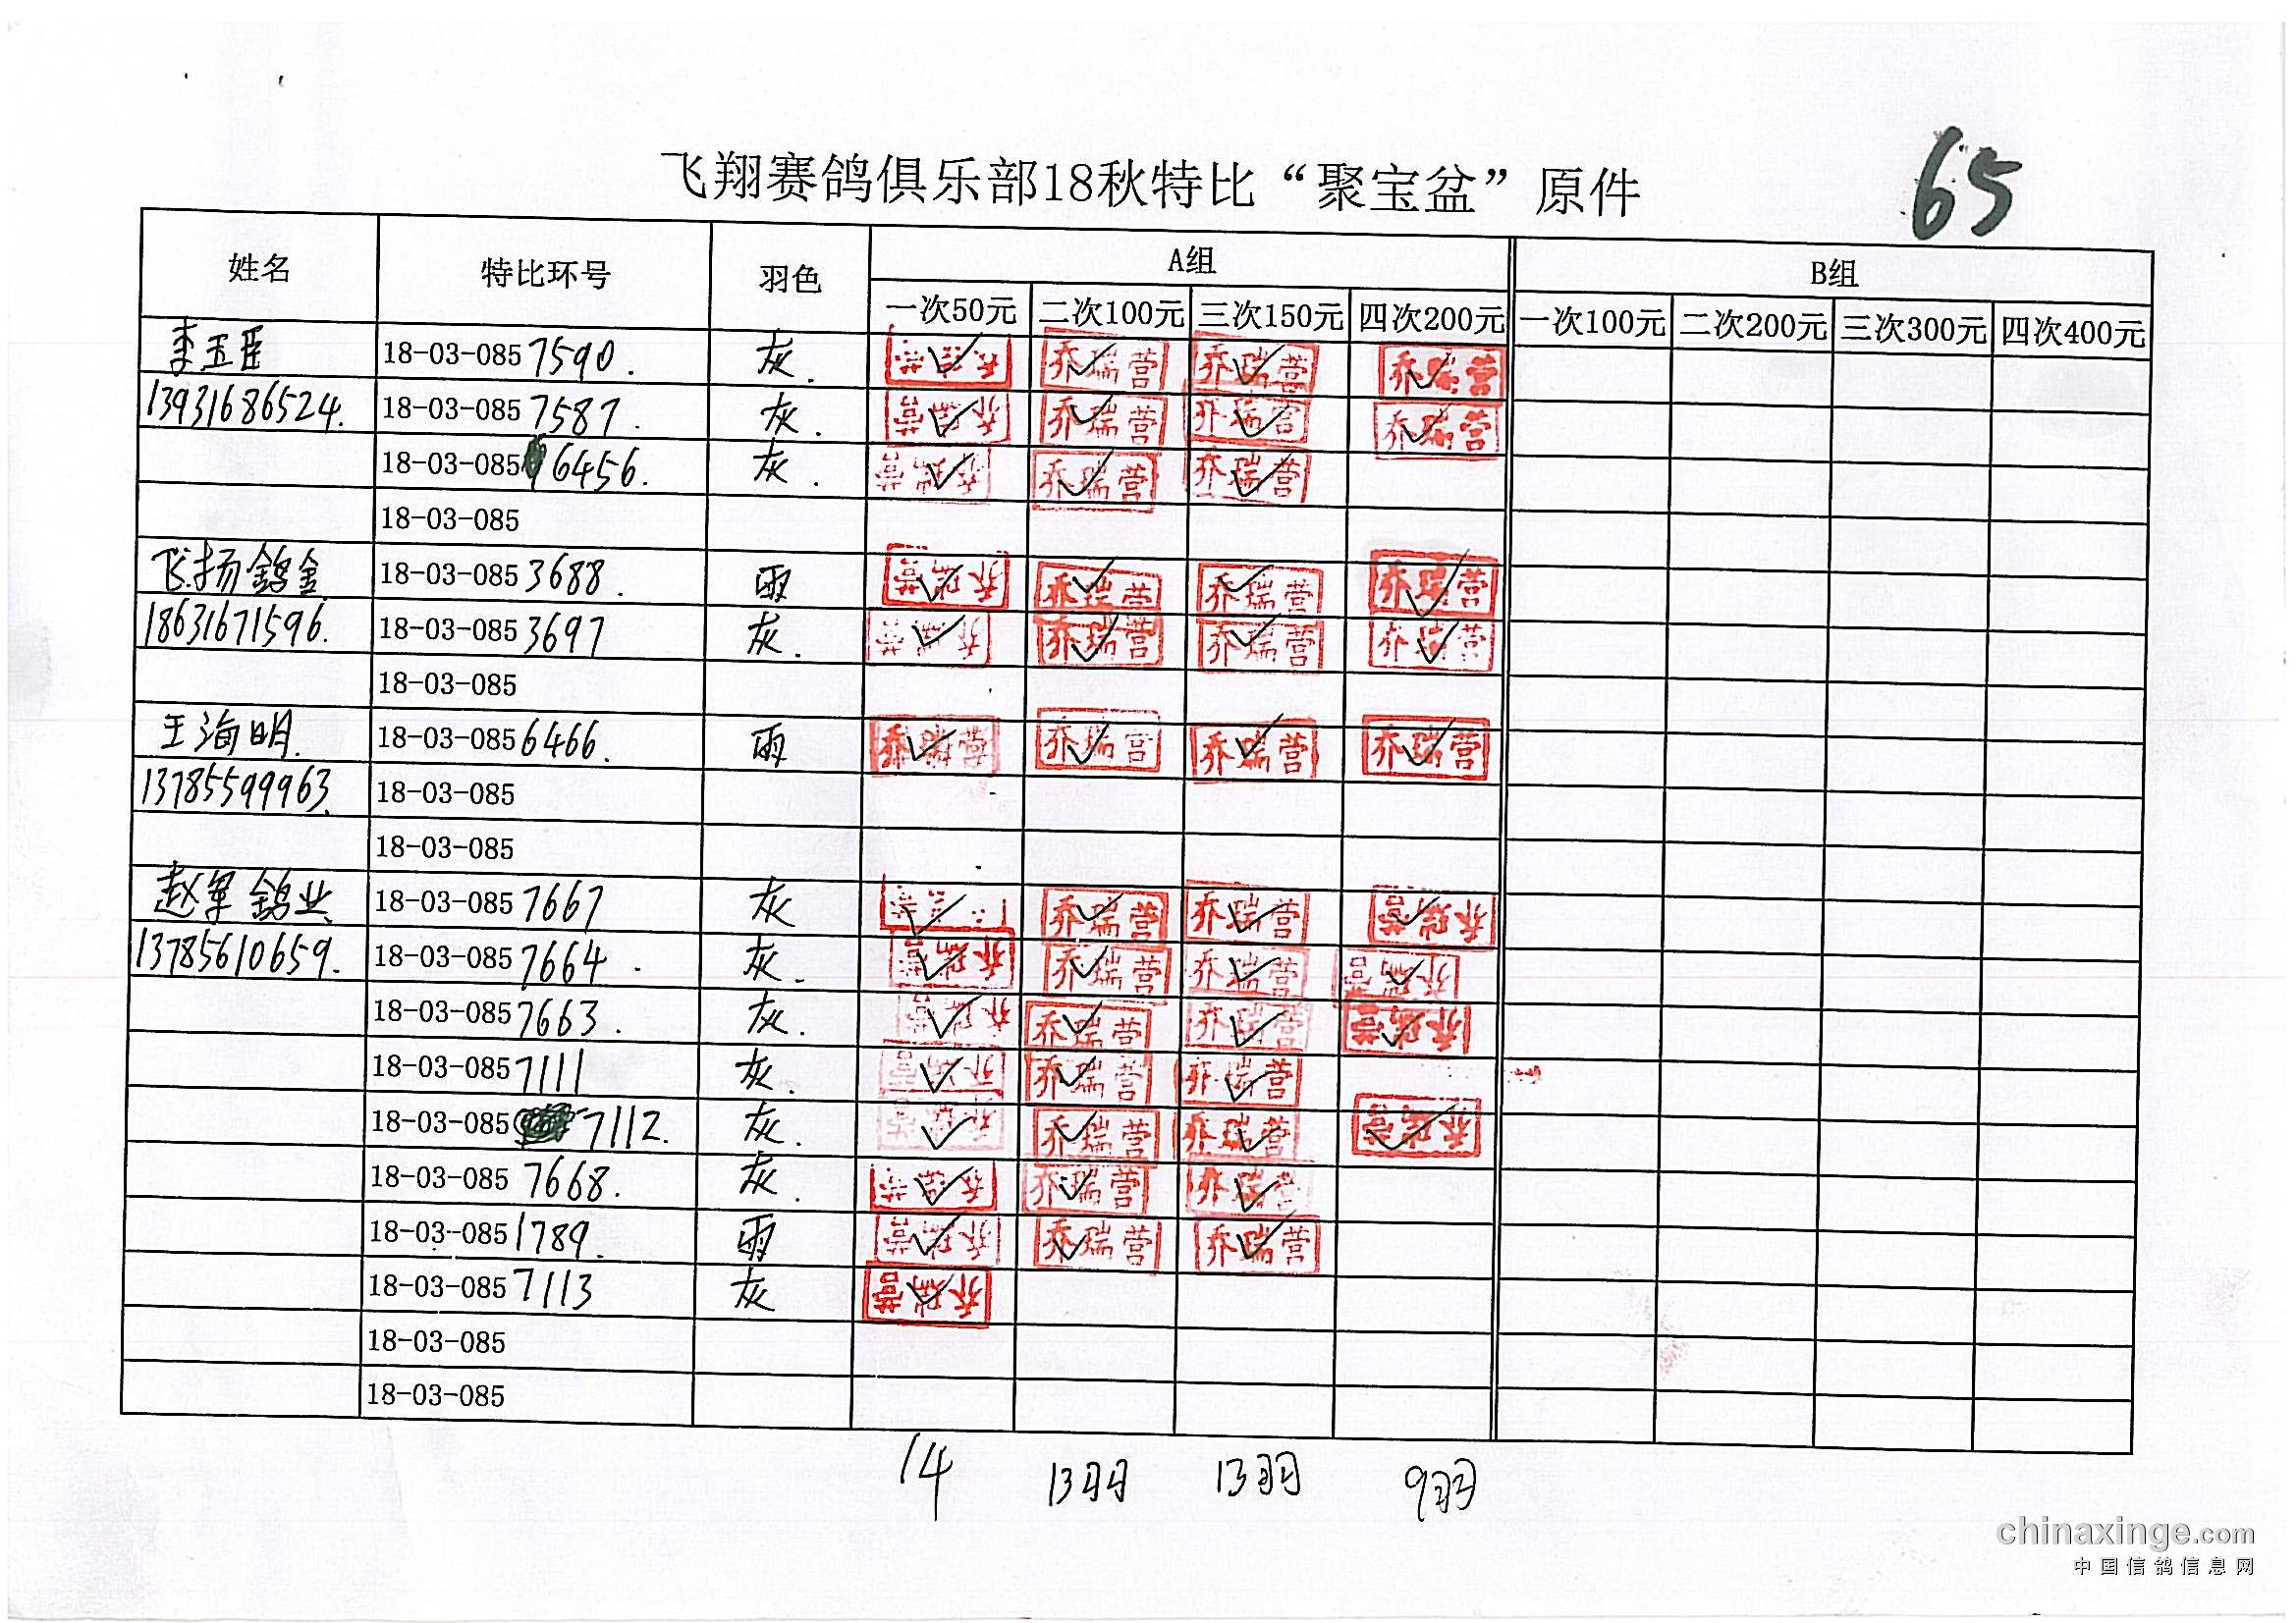 飞翔赛鸽俱乐部18秋特比“聚宝盆”原件 65
姓名 特比环号 羽色 A组 B组
一次50元 二次100元 三次150元 四次200元 一次100元 二次200元 三次300元 四次400元
李玉臣 18-03-085 7590. 灰. 乔瑞营 乔瑞营 乔瑞营
13931686524. 18-03-085 7587. 灰. 乔瑞营 乔瑞营 乔瑞营 乔瑞营
18-03-085 6456. 灰. 乔瑞营 乔瑞营 乔瑞营
18-03-085
飞扬鸽舍 18-03-085 3688. 雨 乔瑞营 乔瑞营 乔瑞营 乔瑞营
18631671596. 18-03-085 3697 灰. 乔瑞营 乔瑞营 乔瑞营 乔瑞营
18-03-085
王海明. 18-03-085 6466. 雨 乔瑞营 乔瑞营 乔瑞营 乔瑞营
13785599963. 18-03-085
18-03-085
赵军鸽业. 18-03-085 7667 灰 乔瑞营 乔瑞营 乔瑞营
13785610659. 18-03-085 7664. 灰. 乔瑞营 乔瑞营 乔瑞营 乔瑞营
18-03-085 7663. 灰. 乔瑞营 乔瑞营 乔瑞营 乔瑞营
18-03-085 7111 灰. 乔瑞营 乔瑞营 乔瑞营
18-03-085 7112. 灰. 乔瑞营 乔瑞营 乔瑞营 乔瑞营
18-03-085 7668. 灰. 乔瑞营 乔瑞营 乔瑞营
18-03-085 1789. 雨 乔瑞营 乔瑞营 乔瑞营
18-03-085 7113 灰 乔瑞营
18-03-085
18-03-085
14 13羽 13羽 9羽
chinaxinge.com
中国信鸽信息网